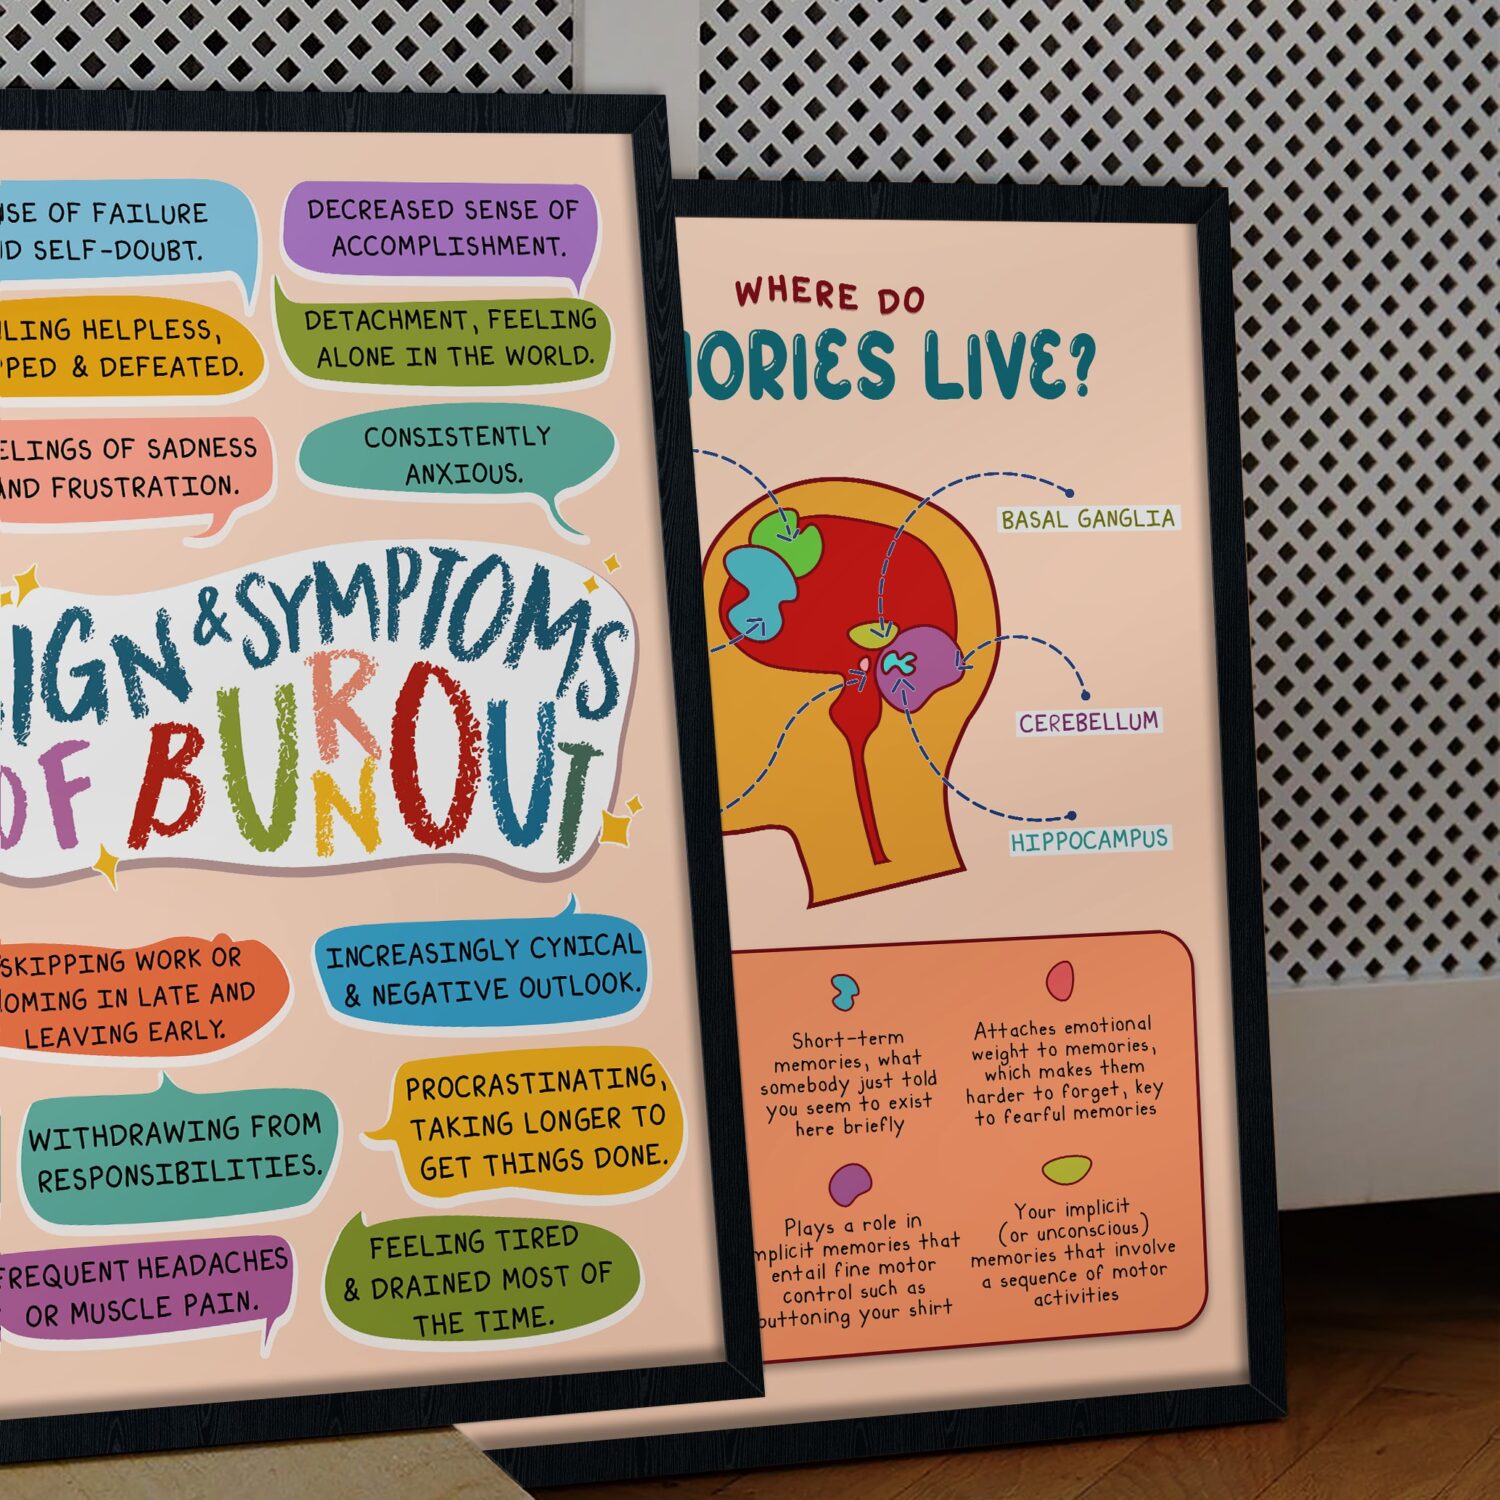 OF FAILURE
SELF-DOUBT.
DECREASED SENSE OF
ACCOMPLISHMENT.
HELPLESS,
& DEFEATED.
DETACHMENT, FEELING
ALONE IN THE WORLD.
OF SADNESS
FRUSTRATION.
CONSISTENTLY
ANXIOUS.
& SYMPTOMS
OF BURNOUT
SKIPPING WORK OR
IN LATE AND
LEAVING EARLY.
INCREASINGLY CYNICAL
& NEGATIVE OUTLOOK.
WITHDRAWING FROM
RESPONSIBILITIES.
PROCRASTINATING,
TAKING LONGER TO
GET THINGS DONE.
FREQUENT HEADACHES
OR MUSCLE PAIN.
FEELING TIRED
& DRAINED MOST OF
THE TIME.
WHERE DO
LIVE?
BASAL GANGLIA
CEREBELLUM
HIPPOCAMPUS
Short-term
memories, what
somebody just told
you seem to exist
here briefly
Attaches emotional
weight to memories,
which makes them
harder to forget, key
to fearful memories
Plays a role in
memories that
entail fine motor
control such as
your shirt
Your implicit
(or unconscious)
memories that involve
a sequence of motor
activities